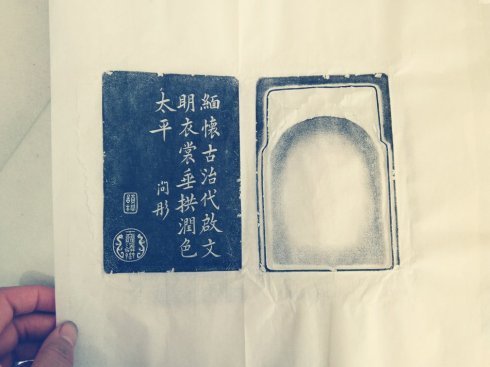 緬懷古治代啟文
明衣裳垂拱潤色
太平
尚彤